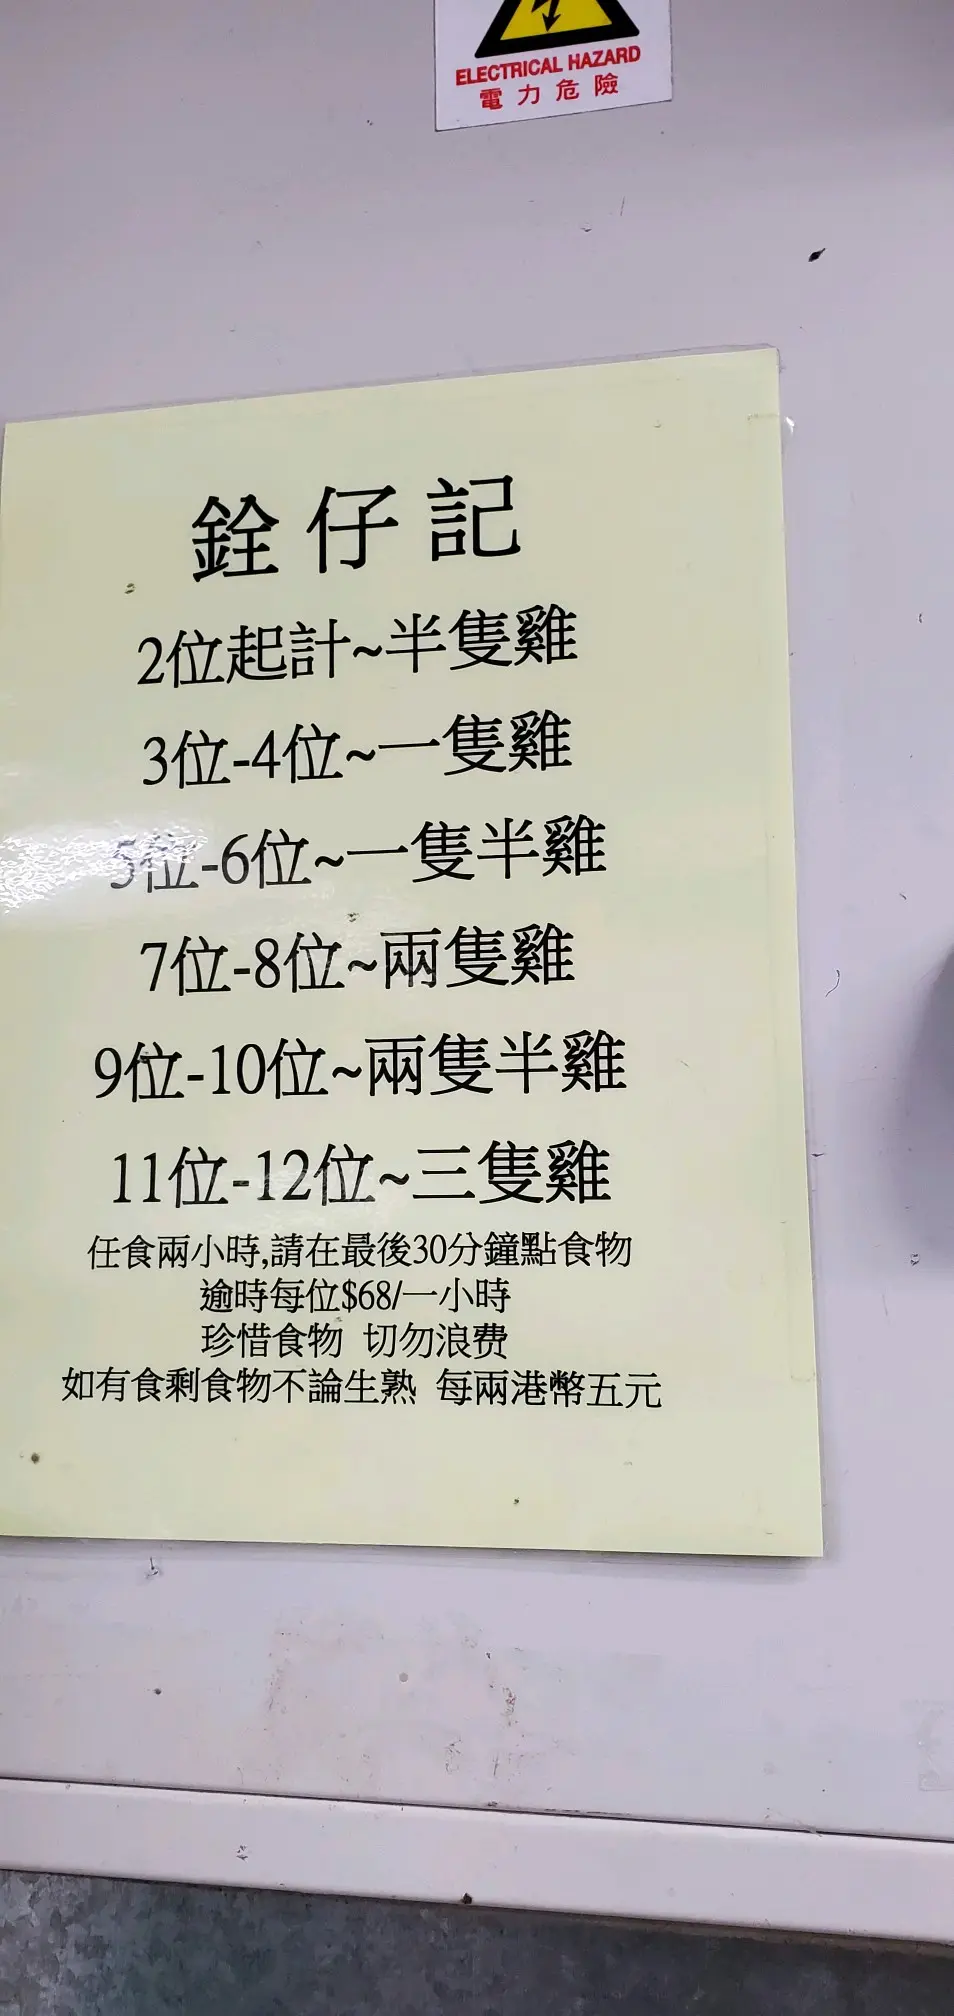 ELECTRICAL HAZARD
電力危險
銓仔記
2位起計~半隻雞
3位-4位~一隻雞
5位-6位~一隻半雞
7位-8位~兩隻雞
9位-10位~兩隻半雞
11位-12位~三隻雞
任食兩小時,請在最後30分鐘點食物
逾時每位$68/一小時
珍惜食物 切勿浪费
如有食剩食物不論生熟 每兩港幣五元